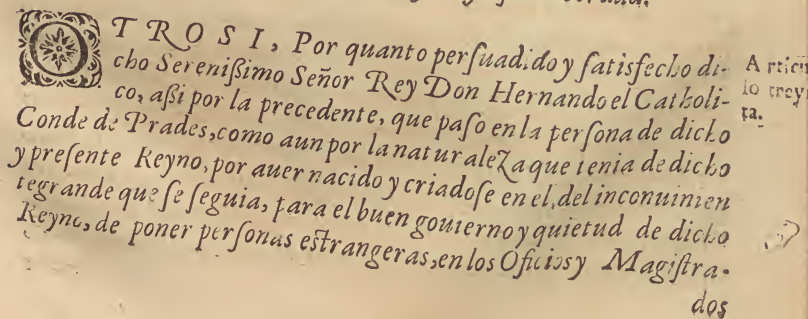 OTROSI, Por quanto perſuadido y ſatisfecho di-
cho Sereniſsimo Señor Rey Don Hernando el Catholi-
co, aſsi por la precedente, que paſo en la perſona de dicho
Conde de Prades, como aun por la naturaleza que tenia de dicho
y preſente Reyno, por auer nacido y criadoſe en el, del inconuinien
te grande que ſe ſeguia, para el buen gouierno y quietud de dicho
Reyno, de poner perſonas eſtrangeras, en los Oficios y Magiſtra-
dos
Artícu
lo trey
ta.